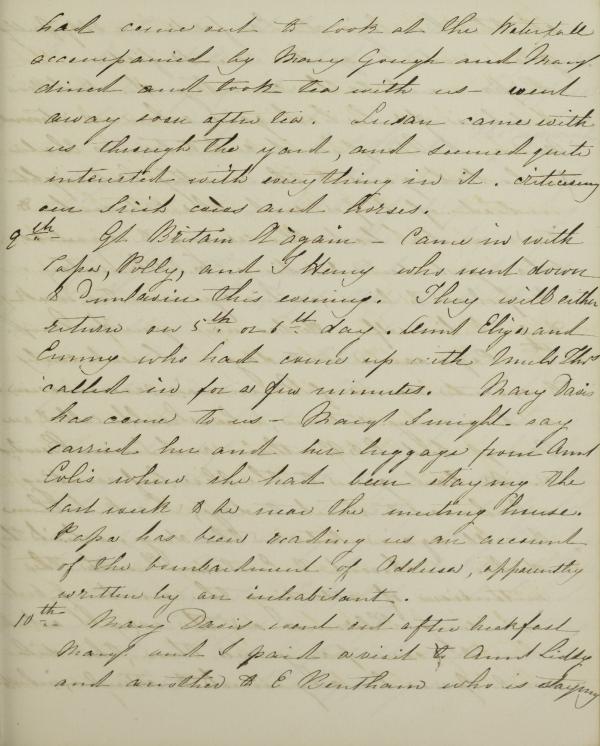 had come out to look at the Waterfall
accompanied by Mary Gough and Mary
dined and took tea with us - went
away soon after tea. Susan came with
us through the yard, and seemed quite
interested with everything in it. criticising
our Irish cows and horses.
9th - Gt Britain St again - Came in with
Papa, Polly, and T Henry who went down
to this evening. They will either
return on 5th or 6th day. Aunt Eliza and
Emmy who had come up with Uncle Thos
called in for a few minutes. Mary Davis
has come to us - Mary I might say
carried her and her luggage from Aunt
where she had been staying the
last week to be near the meeting house.
Papa has been reading us an account
of the bombardment of Odessa, apparently
written by an inhabitant.
10th - Mary Davis went out after breakfast
Mary and I paid a visit to Aunt Liddy
and another to E Bentham who is staying